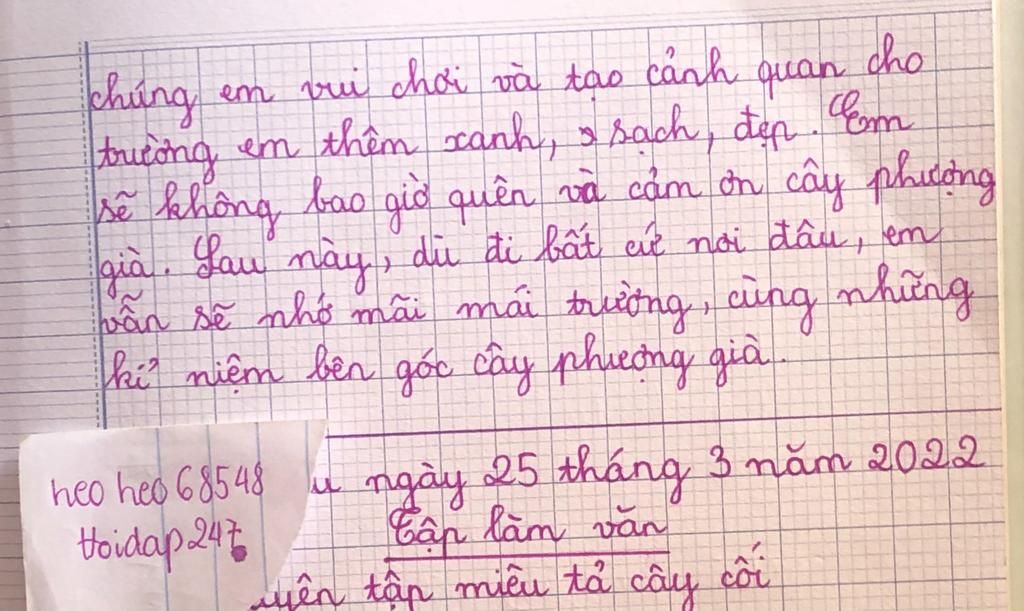 chúng em vui chơi và tạo cảnh quan cho
trường em thêm xanh, sạch, đẹp. Em
sẽ không bao giờ quên và cảm ơn cây phượng
già. Sau này, dù đi bất cứ nơi đâu, em
vẫn sẽ nhớ mãi mái trường, cùng những
kỉ niệm bên gốc cây phượng già.
ngày 25 tháng 3 năm 2022
Tập làm văn
tập miêu tả cây cối
heo heo 68548
Hoidap247